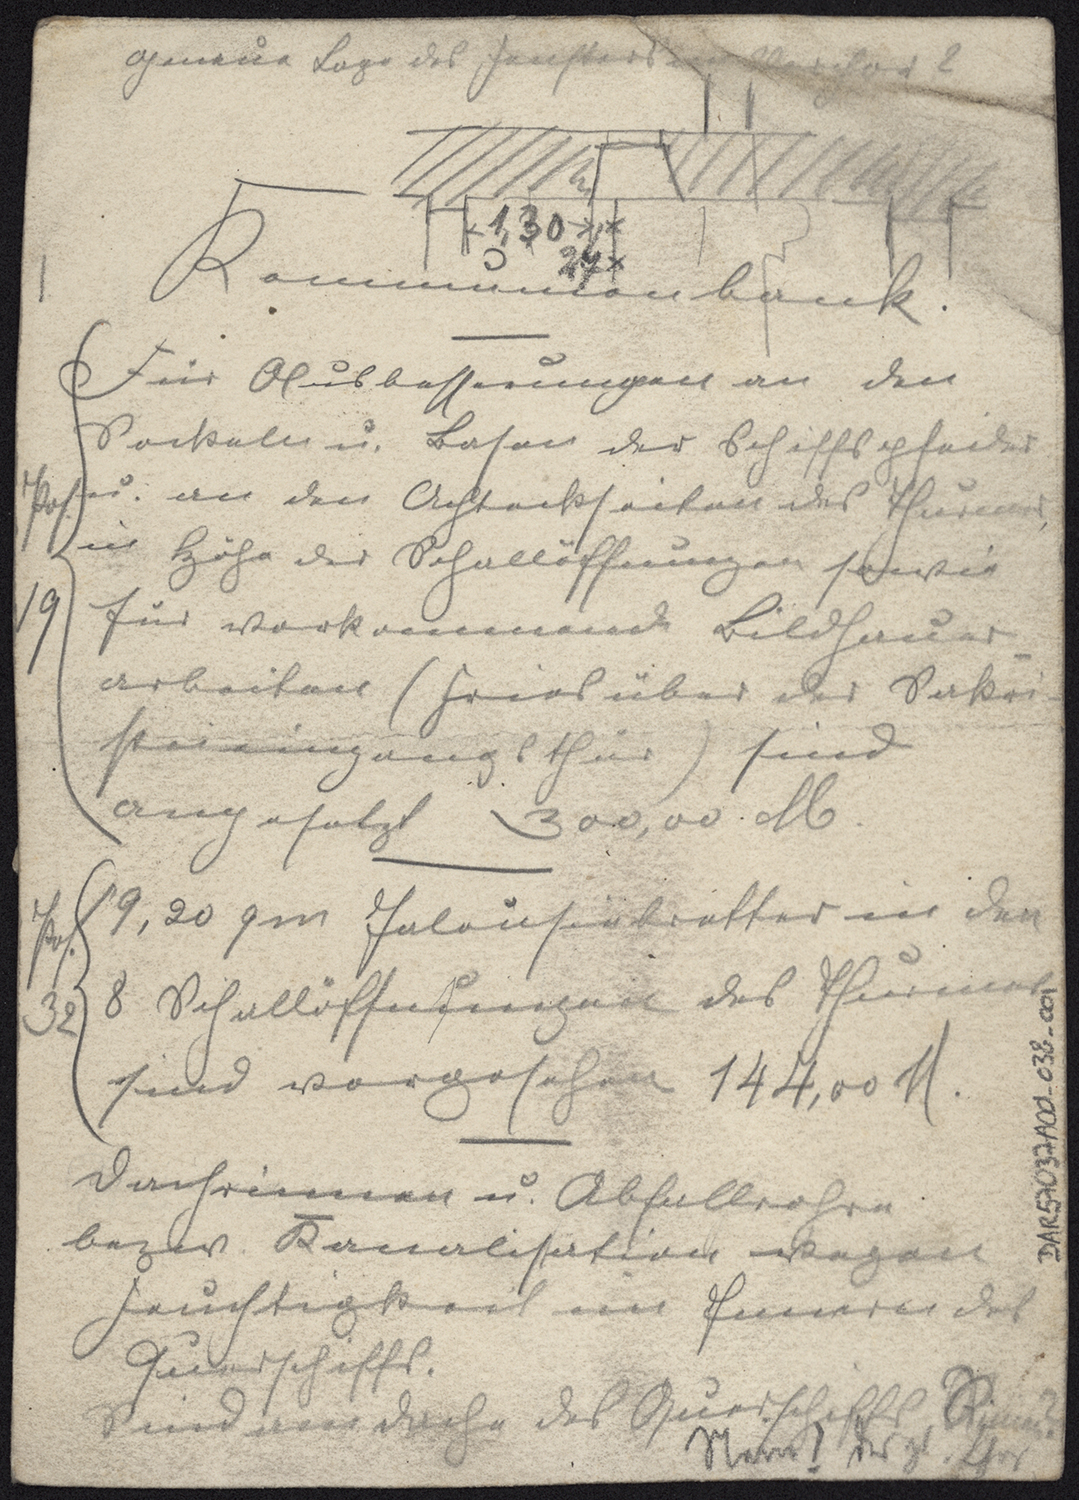 genaue Lage des Fensters im Vorchor?
1,30
24
Kommunionbank.
Für Ausbesserungen an den
Sockeln u. Basen der Schiffspfeiler
Pos. u. an den Achteckseiten des Thurmes,
in Höhe der Schallöffnungen sowie
19 für vorkommende Bildhauer-
arbeiten (Fries über der Sakri-
steieingangsthür) sind
angesetzt 300,00 M.
Pos. 19,20 qm Jalousiebretter in den
32 8 Schallöffnungen des Thurmes
sind vorgesehen 144,00 M.
Dachrinnen u. Abfallrohre
bezw. Kanalisation wegen
Feuchtigkeit im Innern des
Querschiffs.
Sind am Dache des Querschiffs Rinnen?
Nein!
DAR57037A00-038-001